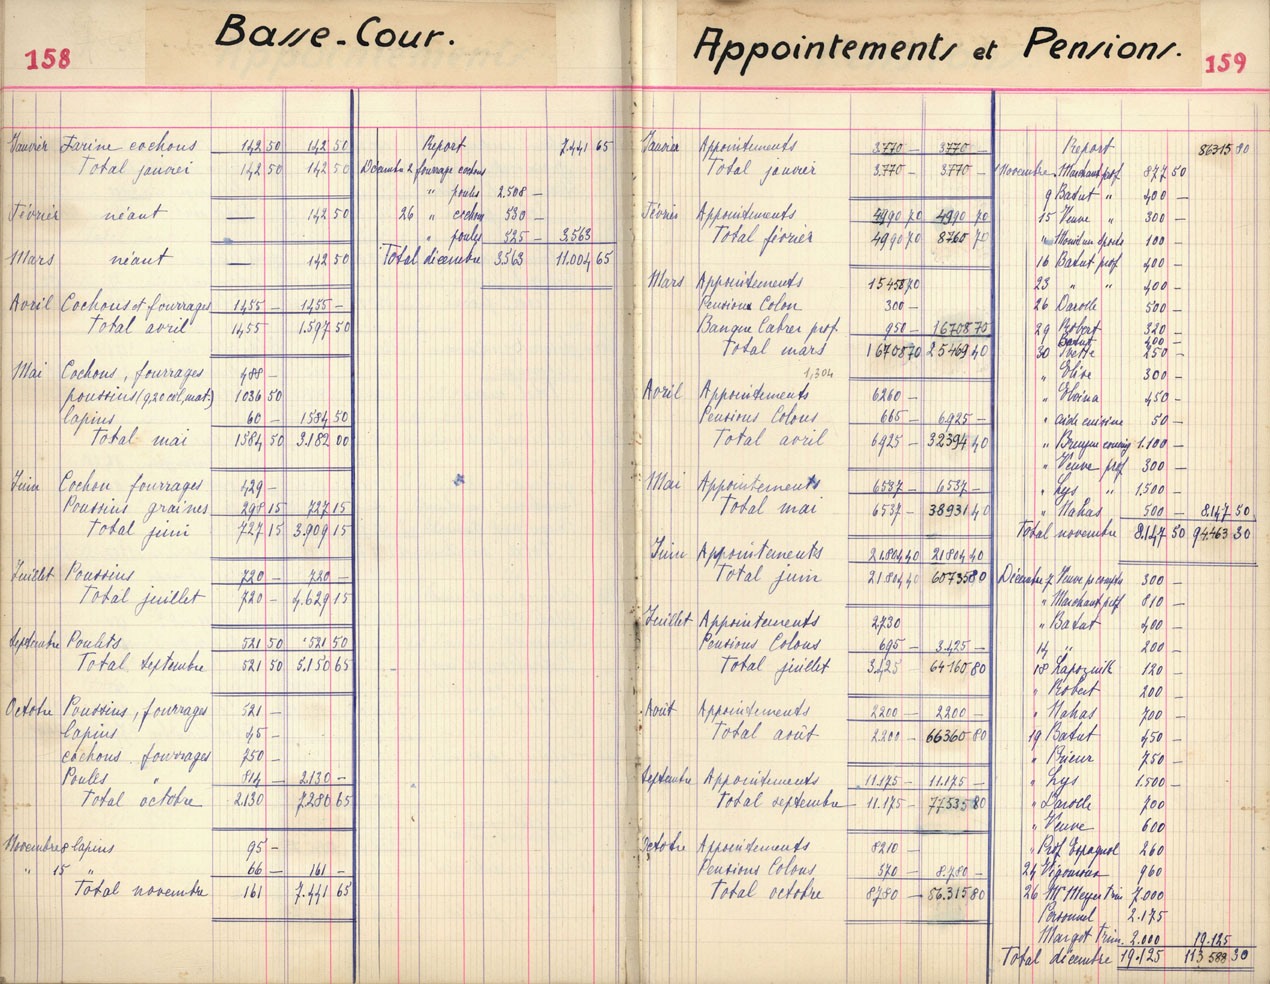 158
Basse-Cour.
Janvier Farine cochons 142 50 142 50
Total janvier 142 50 142 50
Février néant — 142 50
Mars néant — 142 50
Avril Cochons et fourrages 1455 — 1455 —
Total avril 1455 1.597 50
Mai Cochons, fourrages 488 —
poussins 1036 50
lapins 60 — 1584 50
Total mai 1584 50 3.182 00
Juin Cochon fourrages 429 —
Poussins graines 298 15 727 15
Total juin 727 15 3.909 15
Juillet Poussins 720 — 720 —
Total juillet 720 — 4.629 15
Septembre Poulets 521 50 521 50
Total Septembre 521 50 5.150 65
Octobre Poussins, fourrages 521 —
lapins 45 —
cochons fourrages 750 —
Poules " 814 — 2.130 —
Total octobre 2.130 7.280 65
Novembre 8 lapins 95 —
" 15 " 66 — 161 —
Total novembre 161 7.441 65
Report 7.441 65
Décembre 2 fourrage cochons
" poules 2.508 —
26 " cochon 530 —
" poules 525 — 3.563
Total décembre 3.563 11.004 65
Appointements et Pensions.
159
Janvier Appointements 3770 — 3770 —
Total janvier 3770 — 3770 —
Février Appointements 4990 70 4990 70
Total février 4990 70 8760 70
Mars Appointements 15458 70
Pensions Colon 300 —
Banque Cabrer prof 950 — 16708 70
Total mars 16708 70 25469 40
1,304
Avril Appointements 6260 —
Pensions Colons 665 — 6.925 —
Total avril 6.925 — 32394 40
Mai Appointements 6537 — 6537 —
Total mai 6537 — 38931 40
Juin Appointements 21804 40 21804 40
Total juin 21804 40 60735 80
Juillet Appointements 2730
Pensions Colons 695 — 3.425 —
Total juillet 3425 64160 80
Août Appointements 2200 — 2200 —
Total août 2200 — 66360 80
Septembre Appointements 11.175 — 11.175 —
Total septembre 11.175 — 77535 80
Octobre Appointements 8210 —
Pensions Colons 570 — 8.780 —
Total octobre 8780 — 86.315 80
Report 86315 80
Novembre Marchant prof 877 50
9 Batut " 400 —
15 Veuve " 300 —
" 100 —
16 Batut prof 400 —
23 " " 400 —
26 Darolle 500 —
29 Robert 320 —
Batut 400 —
30 Yvette 250 —
" Elise 300 —
" Elvina 450 —
" aide cuisine 50 —
" 1.100 —
" Veuve prof 300 —
" Lys " 1.500 —
" Nahas 500 — 8.147 50
Total novembre 8.147 50 94.463 30
Décembre 7 Veuve 300 —
" Marchant prof 810 —
" Batut 400 —
14 " 200 —
18 120 —
" Robert 200 —
" Nahas 700 —
19 Batut 450 —
" Prieur 750 —
" Lys 1.500 —
" Darolle 700
" Veuve 600
" Prof Espagnol 260
24 Vigouroux 960
26 Mr Meyer Trim 7.000
Personnel 2.175
Margot Trim. 2.000 19.125
Total décembre 19.125 113 588 30